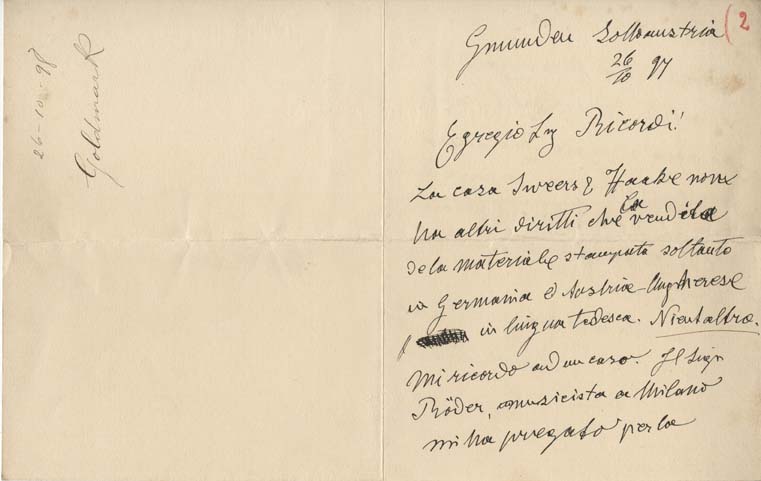 26-10-98
Goldmark
2
Gmunden
26/10 97
Egregio Sig Ricordi!
La casa Sweers & Haake non
ha altri diritti che la vendita
de la materiale stampata soltanto
in Germania e Austria-Ungherese
in lingua tedesca. Nient altro.
Mi ricordo ad un caso. Il Sigr
Röder, musicista a Milano
mi ha pregato per la